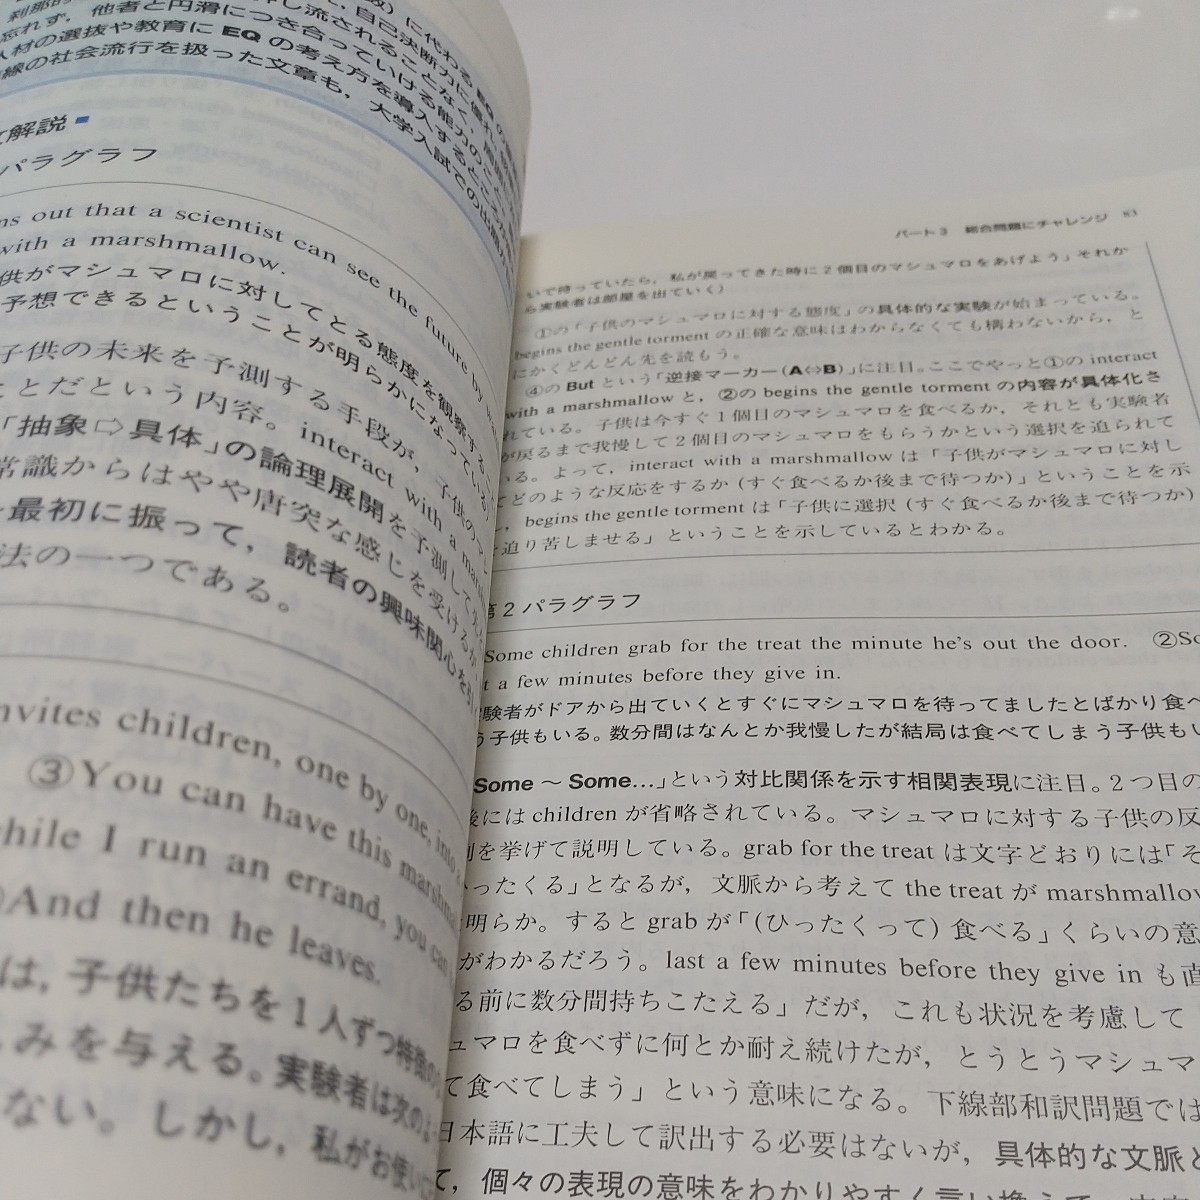 に代わる EQ の
自己決断力に優れ
忘れず，他者と円滑につき合っていける能力のこと
人材の選抜や教育に EQ の考え方を導入するところ
線の社会流行を扱った文章も，大学入試での出題
解説
パラグラフ
ns out that a scientist can see the future by
with a marshmallow.
供がマシュマロに対してとる態度を観察する
予想できるということが明らかになっている）
子供の未来を予測する手段が，子供のマシ
ことだという内容。interact with a
「抽象⇨具体」の論理展開を予測して
常識からはやや唐突な感じを受けるが
最初に振って，読者の興味関心を
法の一つである。
nvites children, one by one, into
③You can have this marshm
while I run an errand, you can
And then he leaves.
は，子供たちを1人ずつ特
しみを与える。実験者は次の
ない。しかし，私がお使いに
パート3　総合問題にチャレンジ　83
いで待っていたら，私が戻ってきた時に2個目のマシュマロをあげよう」それか
ら実験者は部屋を出ていく）
①の「子供のマシュマロに対する態度」の具体的な実験が始まっている。
begins the gentle torment の正確な意味はわからなくても構わないから，と
にかくどんどん先を読もう。
④の But という「逆接マーカー（A⇔B）」に注目。ここでやっと①の interact
with a marshmallow と，②の begins the gentle torment の内容が具体化さ
れている。子供は今すぐ1個目のマシュマロを食べるか，それとも実験者
が戻るまで我慢して2個目のマシュマロをもらうかという選択を迫られて
いる。よって，interact with a marshmallow は「子供がマシュマロに対し
てどのような反応をするか（すぐ食べるか後まで待つか）」ということを示
し，begins the gentle torment は「子供に選択（すぐ食べるか後まで待つか）
を迫り苦しませる」ということを示しているとわかる。
第2パラグラフ
Some children grab for the treat the minute he's out the door. ②So
t a few minutes before they give in.
実験者がドアから出ていくとすぐにマシュマロを待ってましたとばかり食べ
う子供もいる。数分間はなんとか我慢したが結局は食べてしまう子供もい
Some ～ Some…」という対比関係を示す相関表現に注目。2つ目の
後には children が省略されている。マシュマロに対する子供の反
例を挙げて説明している。grab for the treat は文字どおりには「そ
ひったくる」となるが，文脈から考えて the treat が marshmallow
明らか。すると grab が「（ひったくって）食べる」くらいの意
がわかるだろう。last a few minutes before they give in も直
る前に数分間持ちこたえる」だが，これも状況を考慮して
ュマロを食べずに何とか耐え続けたが，とうとうマシュマ
て食べてしまう」という意味になる。下線部和訳問題では
日本語に工夫して訳出する必要はないが，具体的な文脈と
て，個々の表現の意味をわかりやすく言い換えて